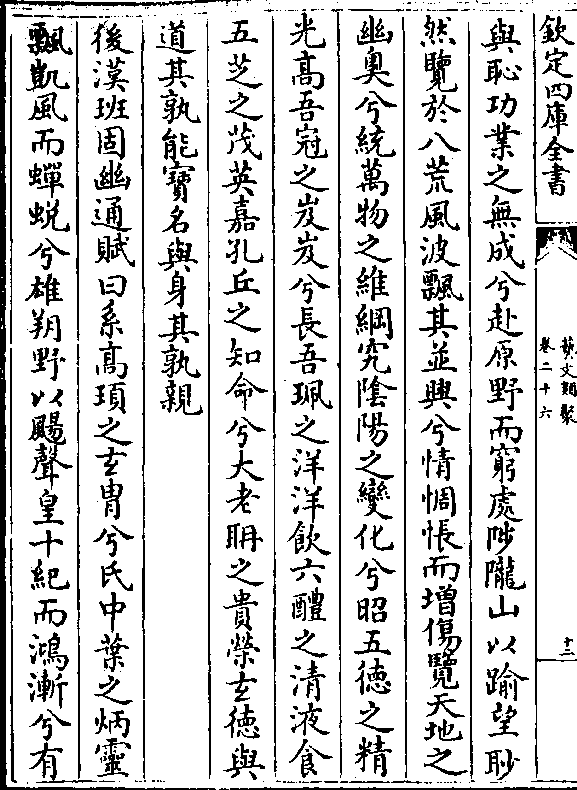 欽定四庫全書
藝文類聚
卷二十六
十二
與恥功業之無成兮赴原野而窮處陟隴山以踰望眇
然覽於八荒風波飄其並興兮情惆悵而增傷覽天地之
幽奧兮統萬物之維綱究陰陽之變化兮昭五德之精
光高吾冠之岌岌兮長吾珮之洋洋飲六醴之清液食
五芝之茂英嘉孔丘之知命兮大老聃之貴榮玄德與
道其孰能寶名與身其孰親
後漢班固幽通賦曰系高頊之玄胄兮氏中葉之炳靈
飄凱風而蟬蛻兮雄朔野以颺聲皇十紀而鴻漸兮有